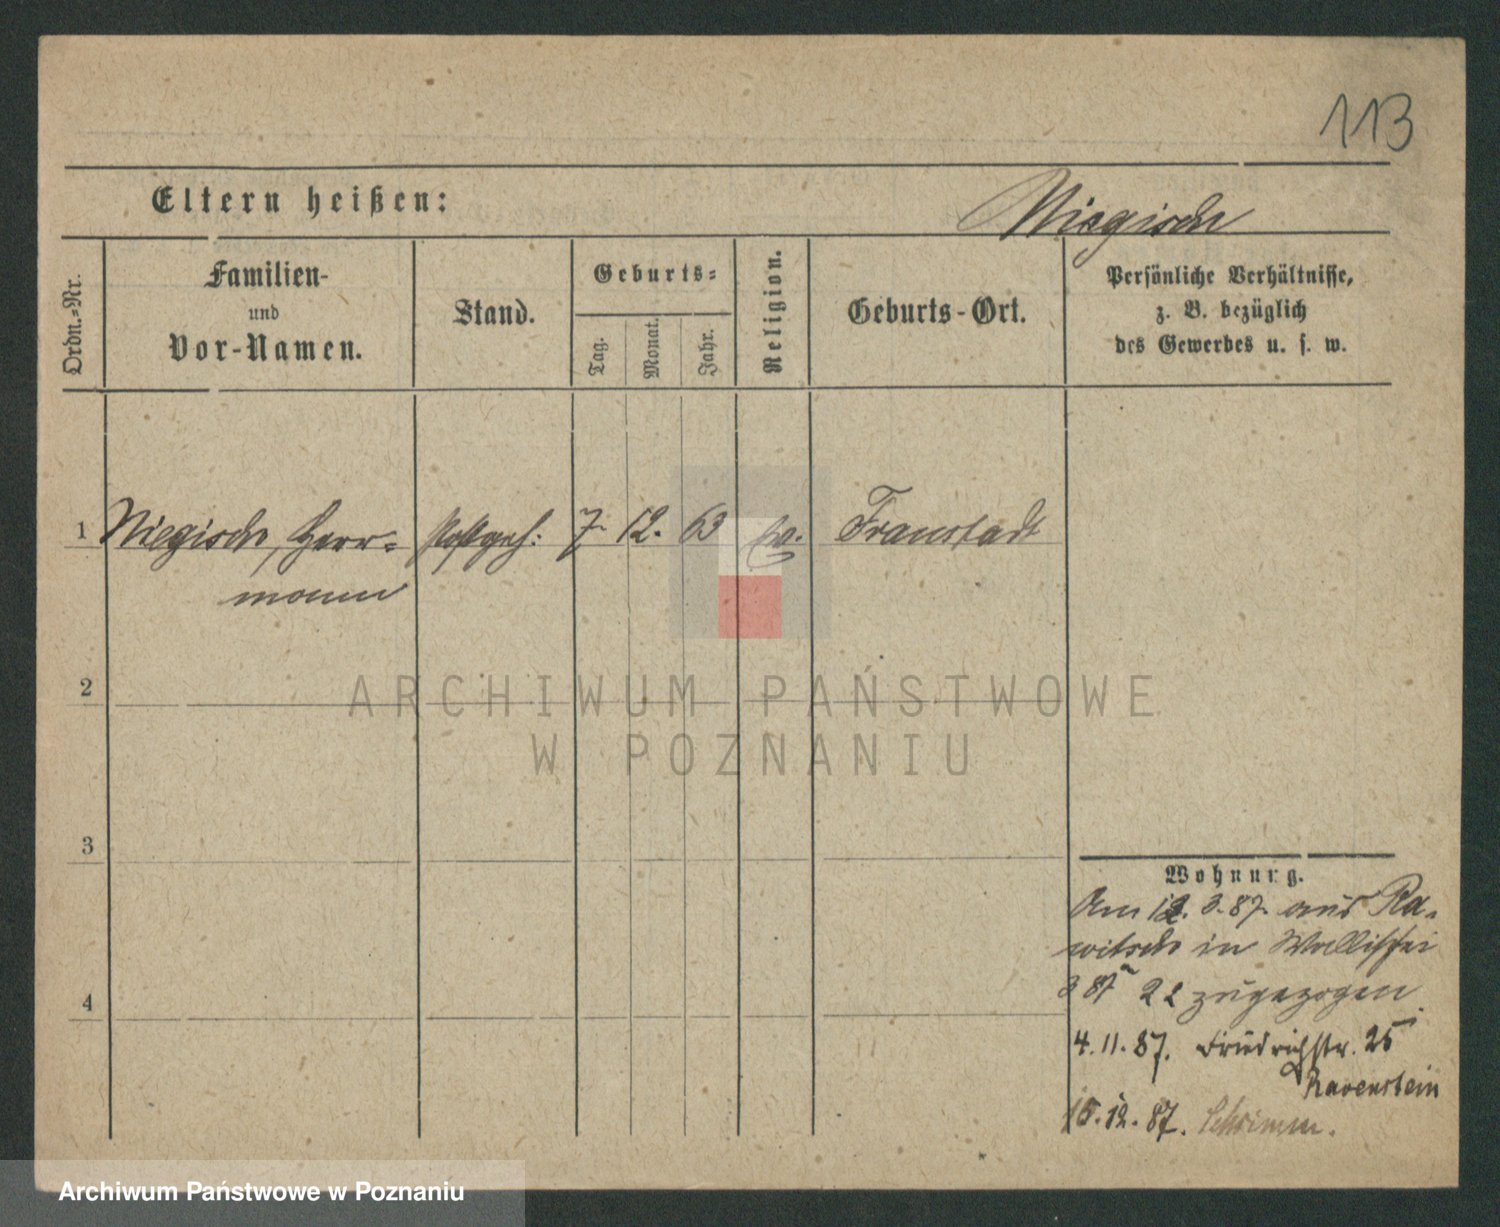 113
Eltern heißen:
Niegisch
Ordn.-Nr.
Familien-
und
Vor-Namen.
Stand.
Geburts-
Tag.
Monat.
Jahr.
Religion.
Geburts-Ort.
Persönliche Verhältnisse,
z. B. bezüglich
des Gewerbes u. s. w.
1 Niegisch, Herr- Postgeh: 7. 12. 63 ev. Fraustadt
mann
2
3
4
ARCHIWUM PAŃSTWOWE
W POZNANIU
Wohnung.
Am 12. 3. 87. aus Ra-
witsch in Wallischei
zugezogen
4. 11. 87. Friedrichstr. 25
Ravenstein
15. 12. 87. Schrimm.
Archiwum Państwowe w Poznaniu